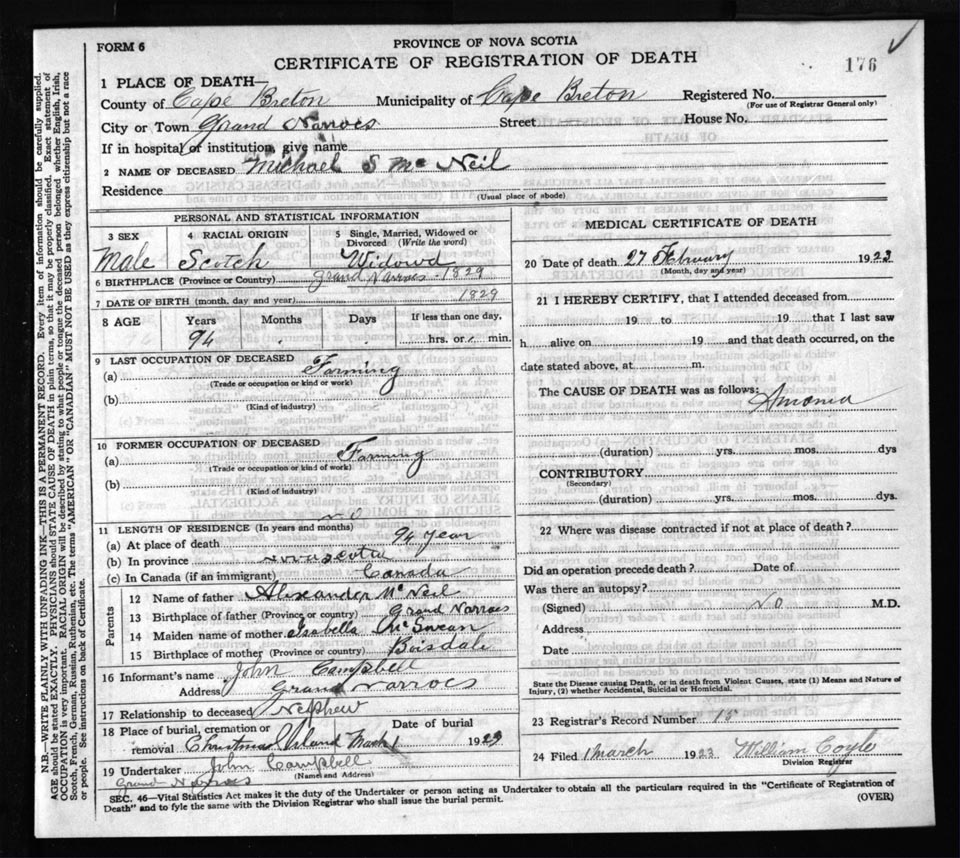 FORM 6
PROVINCE OF NOVA SCOTIA
CERTIFICATE OF REGISTRATION OF DEATH
176
1 PLACE OF DEATH—
County of Cape Breton Municipality of Cape Breton Registered No.
(For use of Registrar General only)
City or Town Grand Narroes Street House No.
If in hospital or institution, give name
2 NAME OF DECEASED Michael S Mc Neil
Residence
(Usual place of abode)
PERSONAL AND STATISTICAL INFORMATION
3 SEX 4 RACIAL ORIGIN 5 Single, Married, Widowed or Divorced (Write the word)
Male Scotch Widowd
6 BIRTHPLACE (Province or Country) Grand Narroes - 1829
7 DATE OF BIRTH (month, day and year) 1829
8 AGE Years Months Days If less than one day,
94 hrs. or min.
9 LAST OCCUPATION OF DECEASED
(a) Farming
(Trade or occupation or kind of work)
(b)
(Kind of industry)
10 FORMER OCCUPATION OF DECEASED
(a) Farming
(Trade or occupation or kind of work)
(b)
(Kind of industry)
11 LENGTH OF RESIDENCE (In years and months)
(a) At place of death 94 year
(b) In province nova scotia
(c) In Canada (if an immigrant) Canada
Parents
12 Name of father Alexander Mc Neil
13 Birthplace of father (Province or country) Grand Narroes
14 Maiden name of mother Isabella McSwean
15 Birthplace of mother (Province or country) Boisdale
16 Informant's name John Campbell
Address Grand Narroes
17 Relationship to deceased Nephew
18 Place of burial, cremation or removal Date of burial
Christmas Island March 1 1923
19 Undertaker John Campbell
(Name and Address)
Grand Narroes
MEDICAL CERTIFICATE OF DEATH
20 Date of death 27 February 1923
(Month, day and year)
21 I HEREBY CERTIFY, that I attended deceased from
19 to 19 that I last saw
h alive on 19 and that death occurred, on the
date stated above, at m.
The CAUSE OF DEATH was as follows:
(duration) yrs. mos. dys
CONTRIBUTORY
(Secondary)
(duration) yrs. mos. dys.
22 Where was disease contracted if not at place of death?
Did an operation precede death? Date of
Was there an autopsy?
(Signed) No M.D.
Address
Date
State the Disease causing Death, or in death from Violent Causes, state (1) Means and Nature of Injury, (2) whether Accidental, Suicidal or Homicidal.
23 Registrar's Record Number 15
24 Filed 1 March 1923 William Coyle
Division Registrar
SEC. 46—Vital Statistics Act makes it the duty of the Undertaker or person acting as Undertaker to obtain all the particulars required in the "Certificate of Registration of
Death" and to fyle the same with the Division Registrar who shall issue the burial permit.
(OVER)
N.B.—WRITE PLAINLY WITH UNFADING INK—THIS IS A PERMANENT RECORD. Every item of information should be carefully supplied.
AGE should be stated EXACTLY. PHYSICIANS should STATE CAUSE OF DEATH in plain terms, so that it may be properly classified. Exact statement of
OCCUPATION is very important. RACIAL ORIGIN will be described by stating to what people or tongue the deceased person belonged whether English, Irish,
Scotch, French, German, Russian, Ruthenian, etc. The terms "AMERICAN" OR "CANADIAN" MUST NOT BE USED as they express citizenship but not a race
or people. See instructions on back of Certificate.